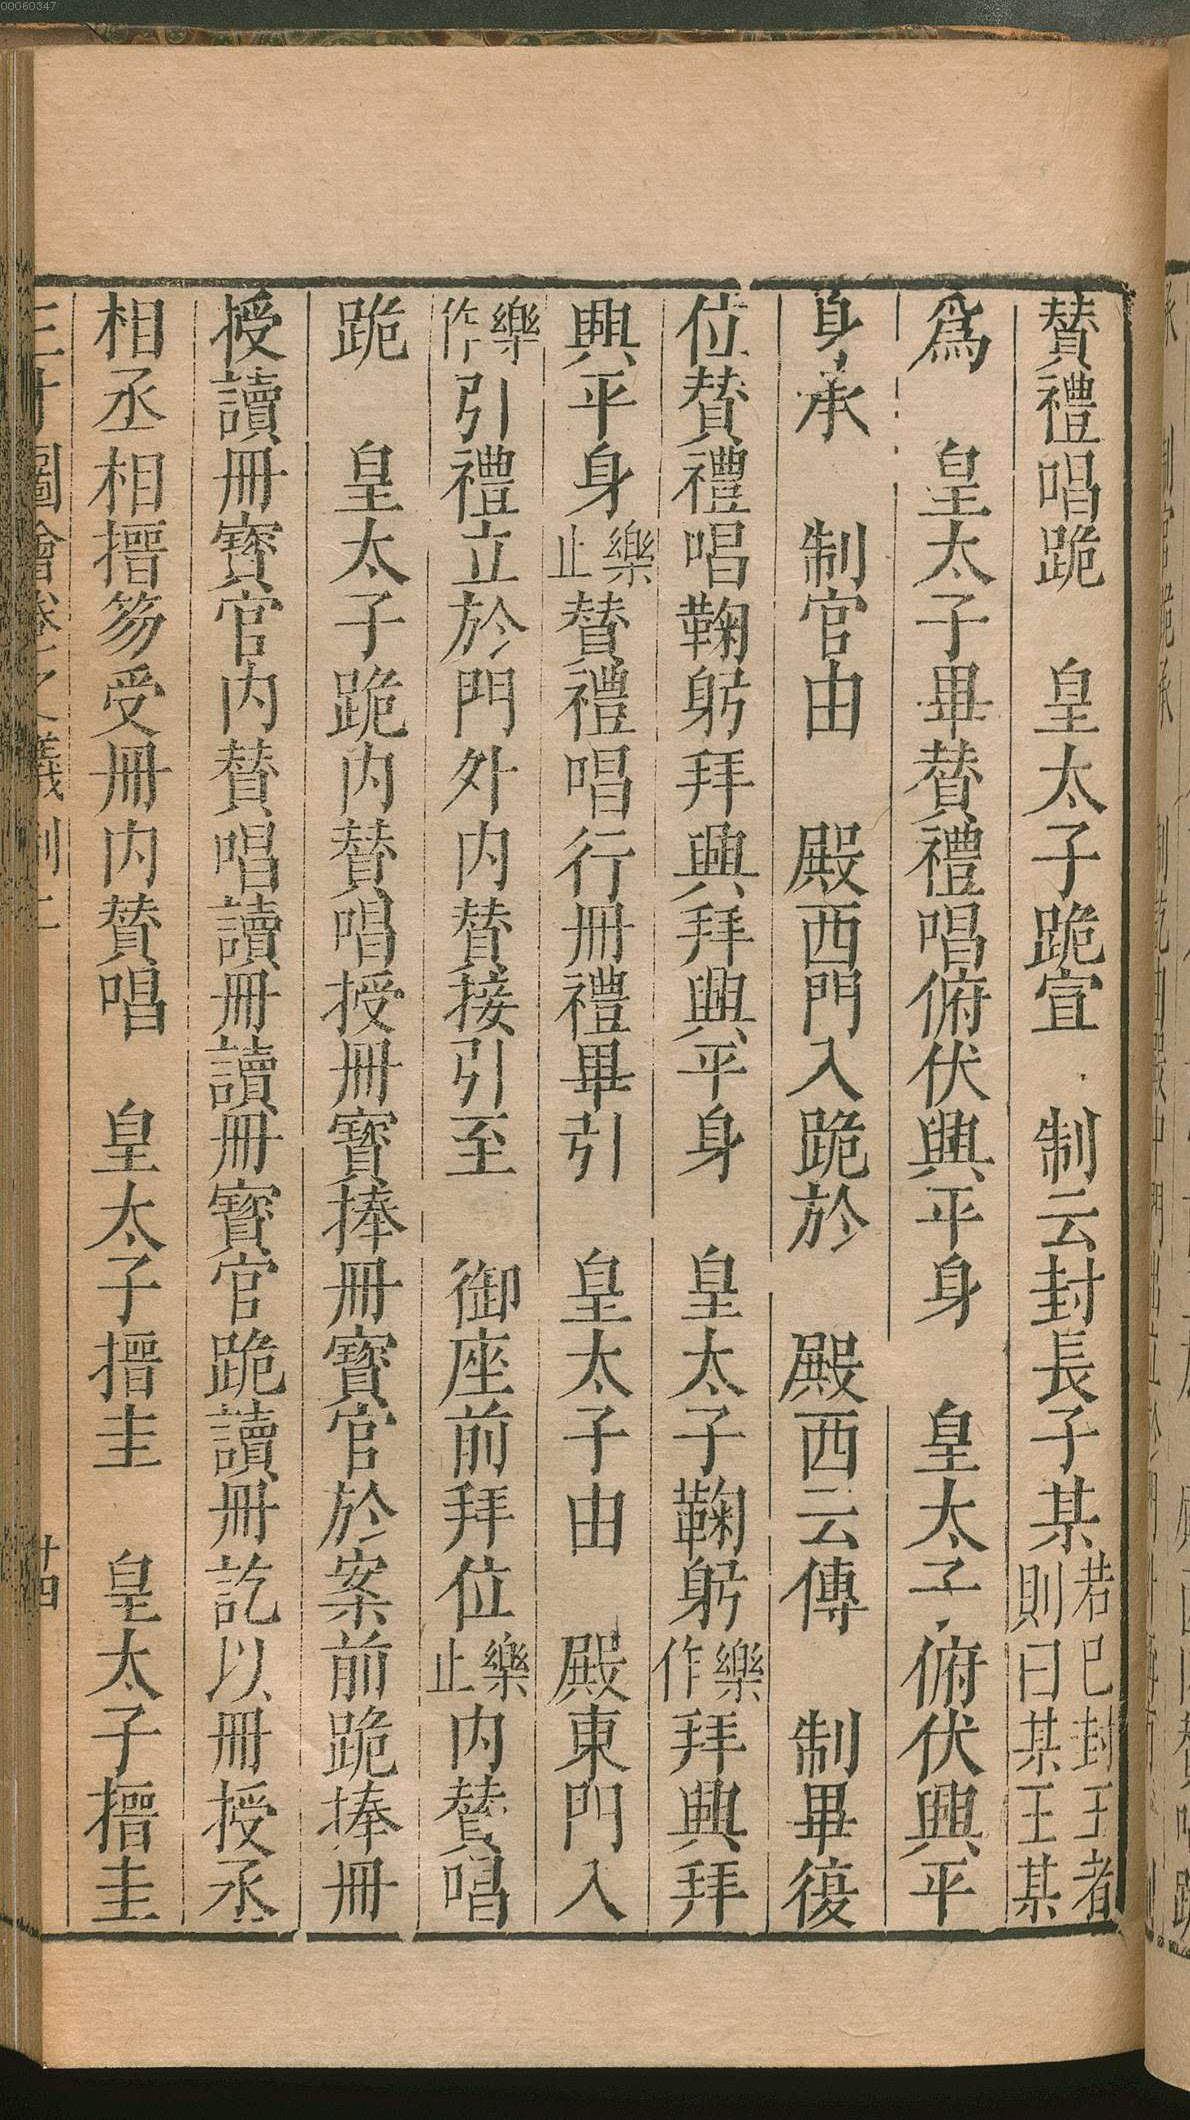 00060347
贊禮唱跪　皇太子跪宣　制云封長子某若已封王者則曰某王某
爲　皇太子畢贊禮唱俯伏興平身　皇太子俯伏興平
身承　制官由　殿西門入跪於　殿西云傳　制畢復
位贊禮唱鞠躬拜興拜興平身　皇太子鞠躬樂作拜興拜
興平身樂止贊禮唱行冊禮畢引　皇太子由　殿東門入
樂作引禮立於門外內贊接引至　御座前拜位樂止內贊唱
跪　皇太子跪內贊唱授冊寳捧冊寳官於案前跪捧冊
授讀冊寳官內贊唱讀冊讀冊寳官跪讀冊訖以冊授丞
相丞相搢笏受冊內贊唱　皇太子搢圭　皇太子搢圭
三才圖會卷之　儀制二　廿四